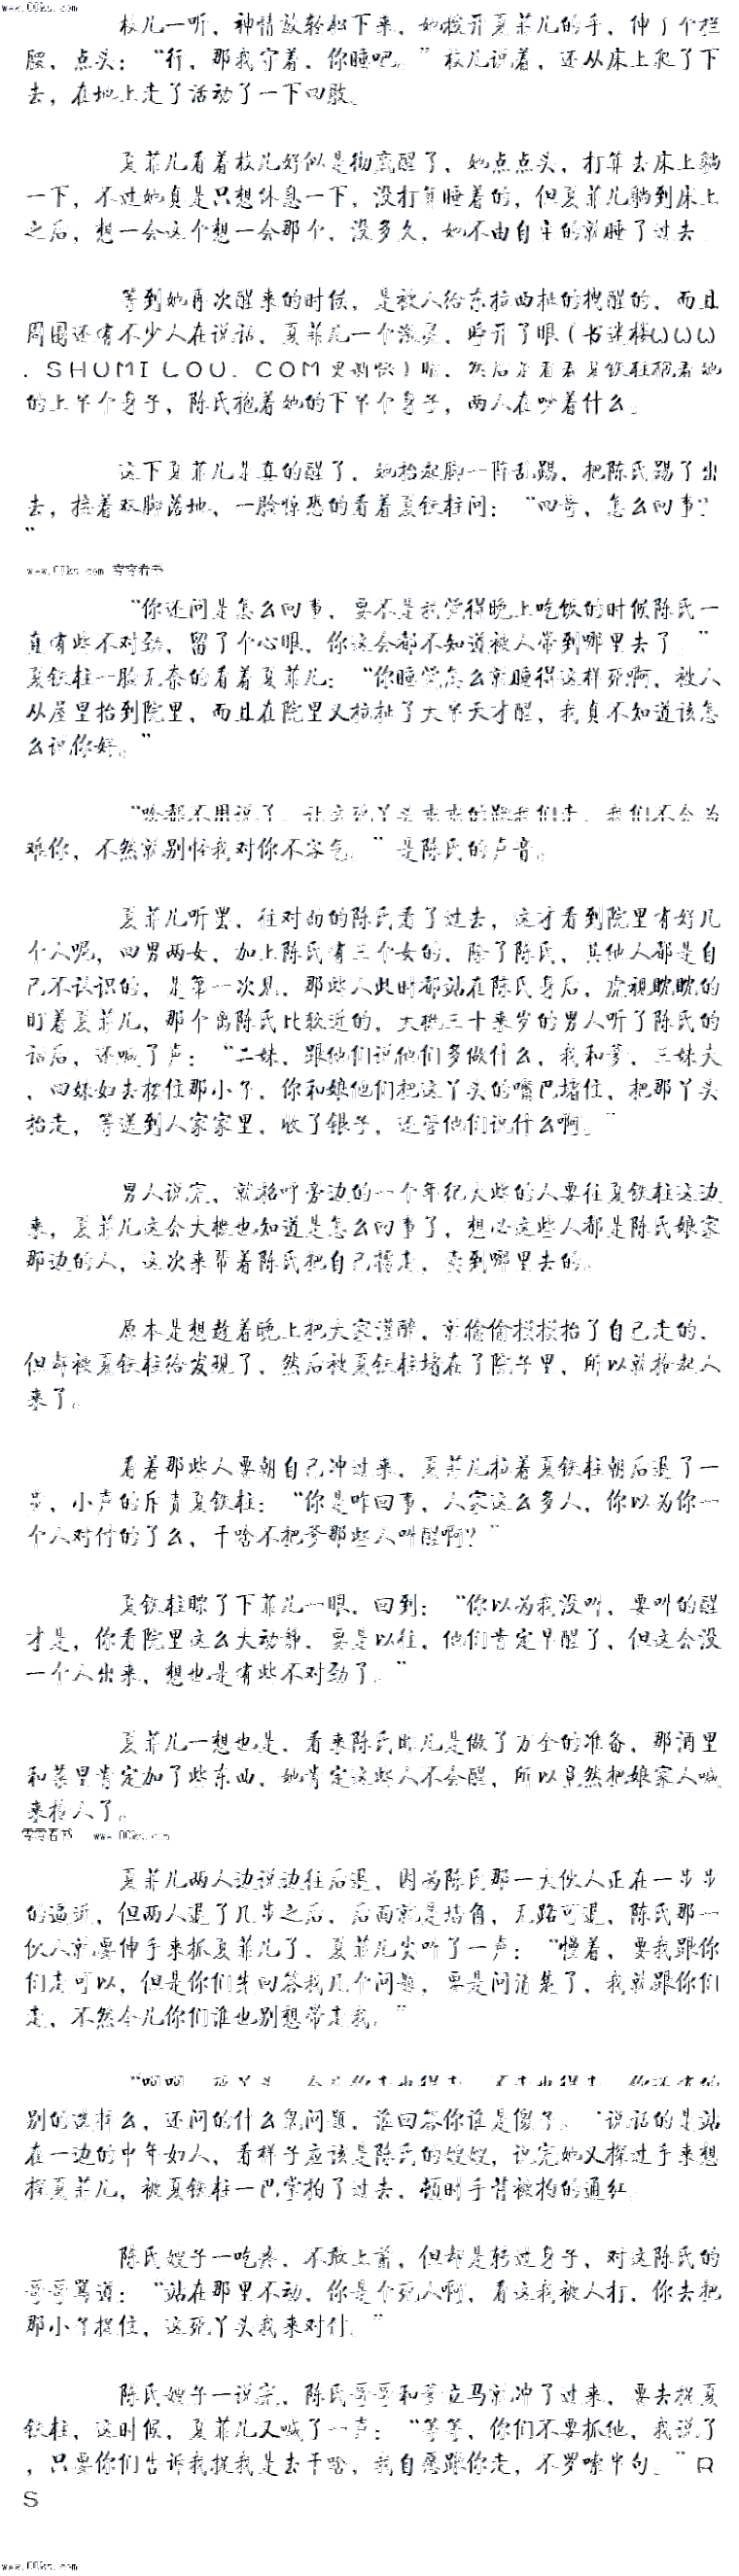 www.00ks.com
枝儿一听，神情放轻松下来，她拨开夏菲儿的手，伸了个拦
腰，点头：“行，那我守着，你睡吧。”枝儿说着，还从床上爬了下
去，在地上走了活动了一下四肢。
夏菲儿看着枝儿好似是彻底醒了，她点点头，打算去床上躺
一下，不过她真是只想休息一下，没打算睡着的，但夏菲儿躺到床上
之后，想一会这个想一会那个，没多久，她不由自主的就睡了过去
等到她再次醒来的时候，是被人给东拉西扯的拽醒的，而且
周围还有不少人在说话，夏菲儿一个激灵，睁开了眼（书迷楼ωωω
．ＳＨＵＭＩＬＯＵ．ＣＯＭ更新快）睛，然后是看着夏铁柱抱着她
的上半个身子，陈氏抱着她的下半个身子，两人在吵着什么。
这下夏菲儿是真的醒了，她抬起脚一阵乱踢，把陈氏踢了出
去，接着双脚落地，一脸惊恐的看着夏铁柱问：“四哥，怎么回事？
”
www.00ks.com 零零看书
“你还问是怎么回事，要不是我觉得晚上吃饭的时候陈氏一
直有些不对劲，留了个心眼，你这会都不知道被人带到哪里去了。”
夏铁柱一脸无奈的看着夏菲儿：“你睡觉怎么就睡得这样死啊，被人
从屋里抬到院里，而且在院里又拉扯了大半天才醒，我真不知道该怎
么说你好。”
“啥都不用说了，让这死丫头乖乖的跟我们走，我们不会为
难你，不然就别怪我对你不客气。”是陈氏的声音。
夏菲儿听罢，往对面的陈氏看了过去，这才看到院里有好几
个人呢，四男两女，加上陈氏有三个女的，除了陈氏，其他人都是自
己不认识的，是第一次见，那些人此时都站在陈氏身后，虎视眈眈的
盯着夏菲儿，那个离陈氏比较近的，大概三十来岁的男人听了陈氏的
话后，还喊了声：“二妹，跟他们说他们多做什么，我和爹，三妹夫
，四妹如去按住那小子，你和娘他们把这丫头的嘴巴堵住，把那丫头
抬走，等送到人家家里，收了银子，还管他们说什么啊。”
男人说完，就招呼旁边的一个年纪大些的人要往夏铁柱这边
来，夏菲儿这会大概也知道是怎么回事了，想必这些人都是陈氏娘家
那边的人，这次来帮着陈氏把自己掳走，卖到哪里去的。
原本是想趁着晚上把大家灌醉，就偷偷摸摸抬了自己走的，
但却被夏铁柱给发现了，然后被夏铁柱堵在了院子里，所以就抢起人
来了。
看着那些人要朝自己冲过来，夏菲儿拉着夏铁柱朝后退了一
步，小声的斥责夏铁柱：“你是咋回事，人家这么多人，你以为你一
个人对付的了么，干啥不把爹那些人叫醒啊？”
夏铁柱瞟了下菲儿一眼，回到：“你以为我没叫，要叫的醒
才是，你看院里这么大动静，要是以往，他们肯定早醒了，但这会没
一个人出来，想也是有些不对劲了。”
夏菲儿一想也是，看来陈氏昨儿是做了万全的准备，那酒里
和菜里肯定加了些东西，她肯定这些人不会醒，所以竟然把娘家人喊
来掳人了。
零零看书 www.00ks.com
夏菲儿两人边说边往后退，因为陈氏那一大伙人正在一步步
的逼近，但两人退了几步之后，后面就是墙角，无路可退，陈氏那一
伙人就要伸手来抓夏菲儿了，夏菲儿尖叫了一声：“慢着，要我跟你
们走可以，但是你们先回答我几个问题，要是问清楚了，我就跟你们
走，不然今儿你们谁也别想带走我。”
“呵呵，死丫头，今儿你走也得走，不走也得走，你还有的
别的选择么，还问的什么鬼问题，谁回答你谁是傻子。”说话的是站
在一边的中年妇人，看样子应该是陈氏的嫂嫂，说完她又探过手来想
探夏菲儿，被夏铁柱一巴掌拍了过去，顿时手背被拍的通红
陈氏嫂子一吃疼，不敢上前，但却是转过身子，对这陈氏的
哥哥骂道：“站在那里不动，你是个死人啊，看这我被人打，你去把
那小子捉住，这死丫头我来对付。”
陈氏嫂子一说完，陈氏哥哥和爹立马就冲了过来，要去捉夏
铁柱，这时候，夏菲儿又喊了一声：“等等，你们不要抓他，我说了
，只要你们告诉我捉我是去干啥，我自愿跟你走，不罗嗦半句。”Ｒ
Ｓ
www.00ks.com